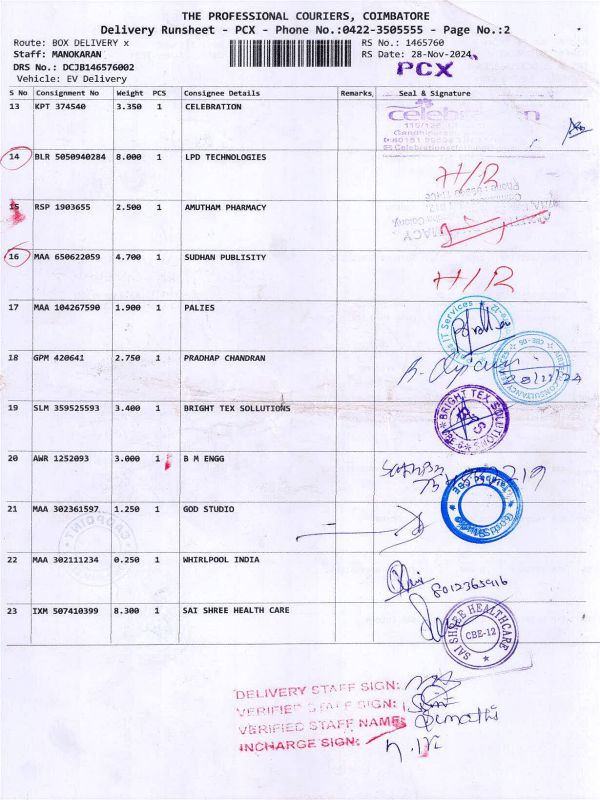 THE PROFESSIONAL COURIERS, COIMBATORE
Delivery Runsheet - PCX - Phone No.:0422-3505555 - Page No.:2
Route: BOX DELIVERY x
RS No.: 1465760
Staff: MANOKARAN
RS Date: 28-Nov-2024
DRS No.: DCJB146576002
PCX
Vehicle: EV Delivery
S No Consignment No Weight PCS Consignee Details Remarks Seal & Signature
13 KPT 374540 3.350 1 CELEBRATION
celebration
14 BLR 5050940284 8.000 1 LPD TECHNOLOGIES
H/R
15 RSP 1903655 2.500 1 AMUTHAM PHARMACY
16 MAA 650622059 4.700 1 SUDHAN PUBLISITY
H/R
17 MAA 104267590 1.900 1 PALIES
IT Services
18 GPM 420641 2.750 1 PRADHAP CHANDRAN
28/11/24
19 SLM 359525593 3.400 1 BRIGHT TEX SOLLUTIONS
BRIGHT TEX SOLUTIONS
20 AWR 1252093 3.000 1 B M ENGG
21 MAA 302361597 1.250 1 GOD STUDIO
22 MAA 302111234 0.250 1 WHIRLPOOL INDIA
8012365916
23 IXM 507410399 8.300 1 SAI SHREE HEALTH CARE
SAI SHREE HEALTHCARE
CBE-12
DELIVERY STAFF SIGN:
VERIFIED STAFF SIGN:
VERIFIED STAFF NAME:
INCHARGE SIGN: